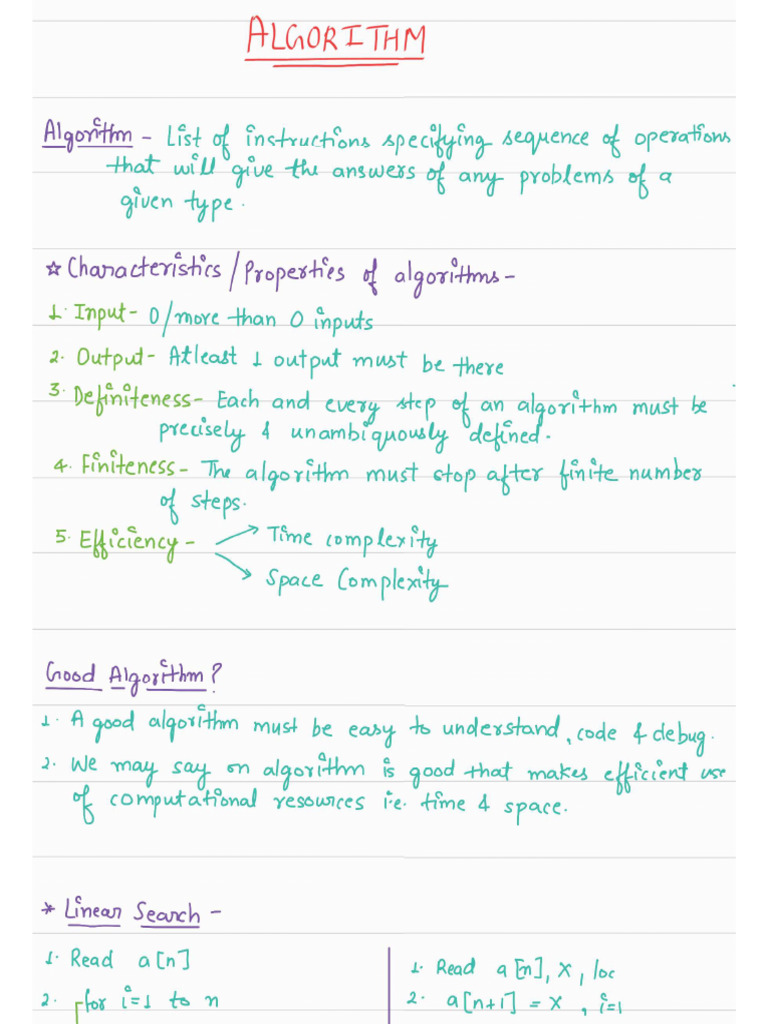 ALGORITHM
Algorithm - List of instructions specifying sequence of operations
that will give the answers of any problems of a
given type.
☆ Characteristics / Properties of algorithms -
1. Input - 0/more than 0 inputs
2. Output - Atleast 1 output must be there
3. Definiteness - Each and every step of an algorithm must be
precisely & unambiquously defined.
4. Finiteness - The algorithm must stop after finite number
of steps.
5. Efficiency - → Time complexity
→ Space Complexity
Good Algorithm?
1. A good algorithm must be easy to understand, code & debug.
2. We may say on algorithm is good that makes efficient use
of computational resources i.e. time & space.
* Linear Search -
1. Read a[n]
2. for i=1 to n
1. Read a[n], X, loc
2. a[n+1] = X , i=1